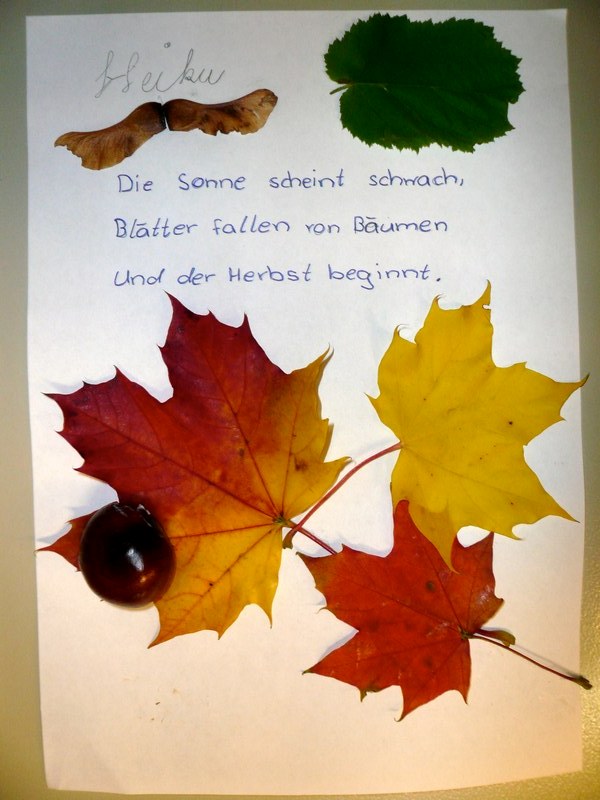 Heiku
Die Sonne scheint schwach,
Blätter fallen von Bäumen
Und der Herbst beginnt.